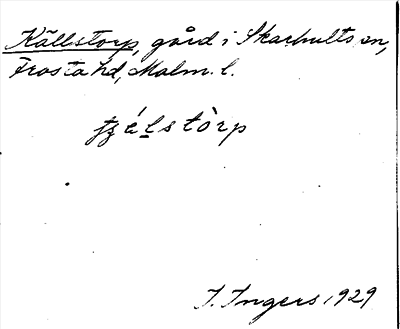 Källstorp, gård i Skarhults sn,
Frosta hd, Malm. l.
tʒélstòrp
I. Ingers 1929